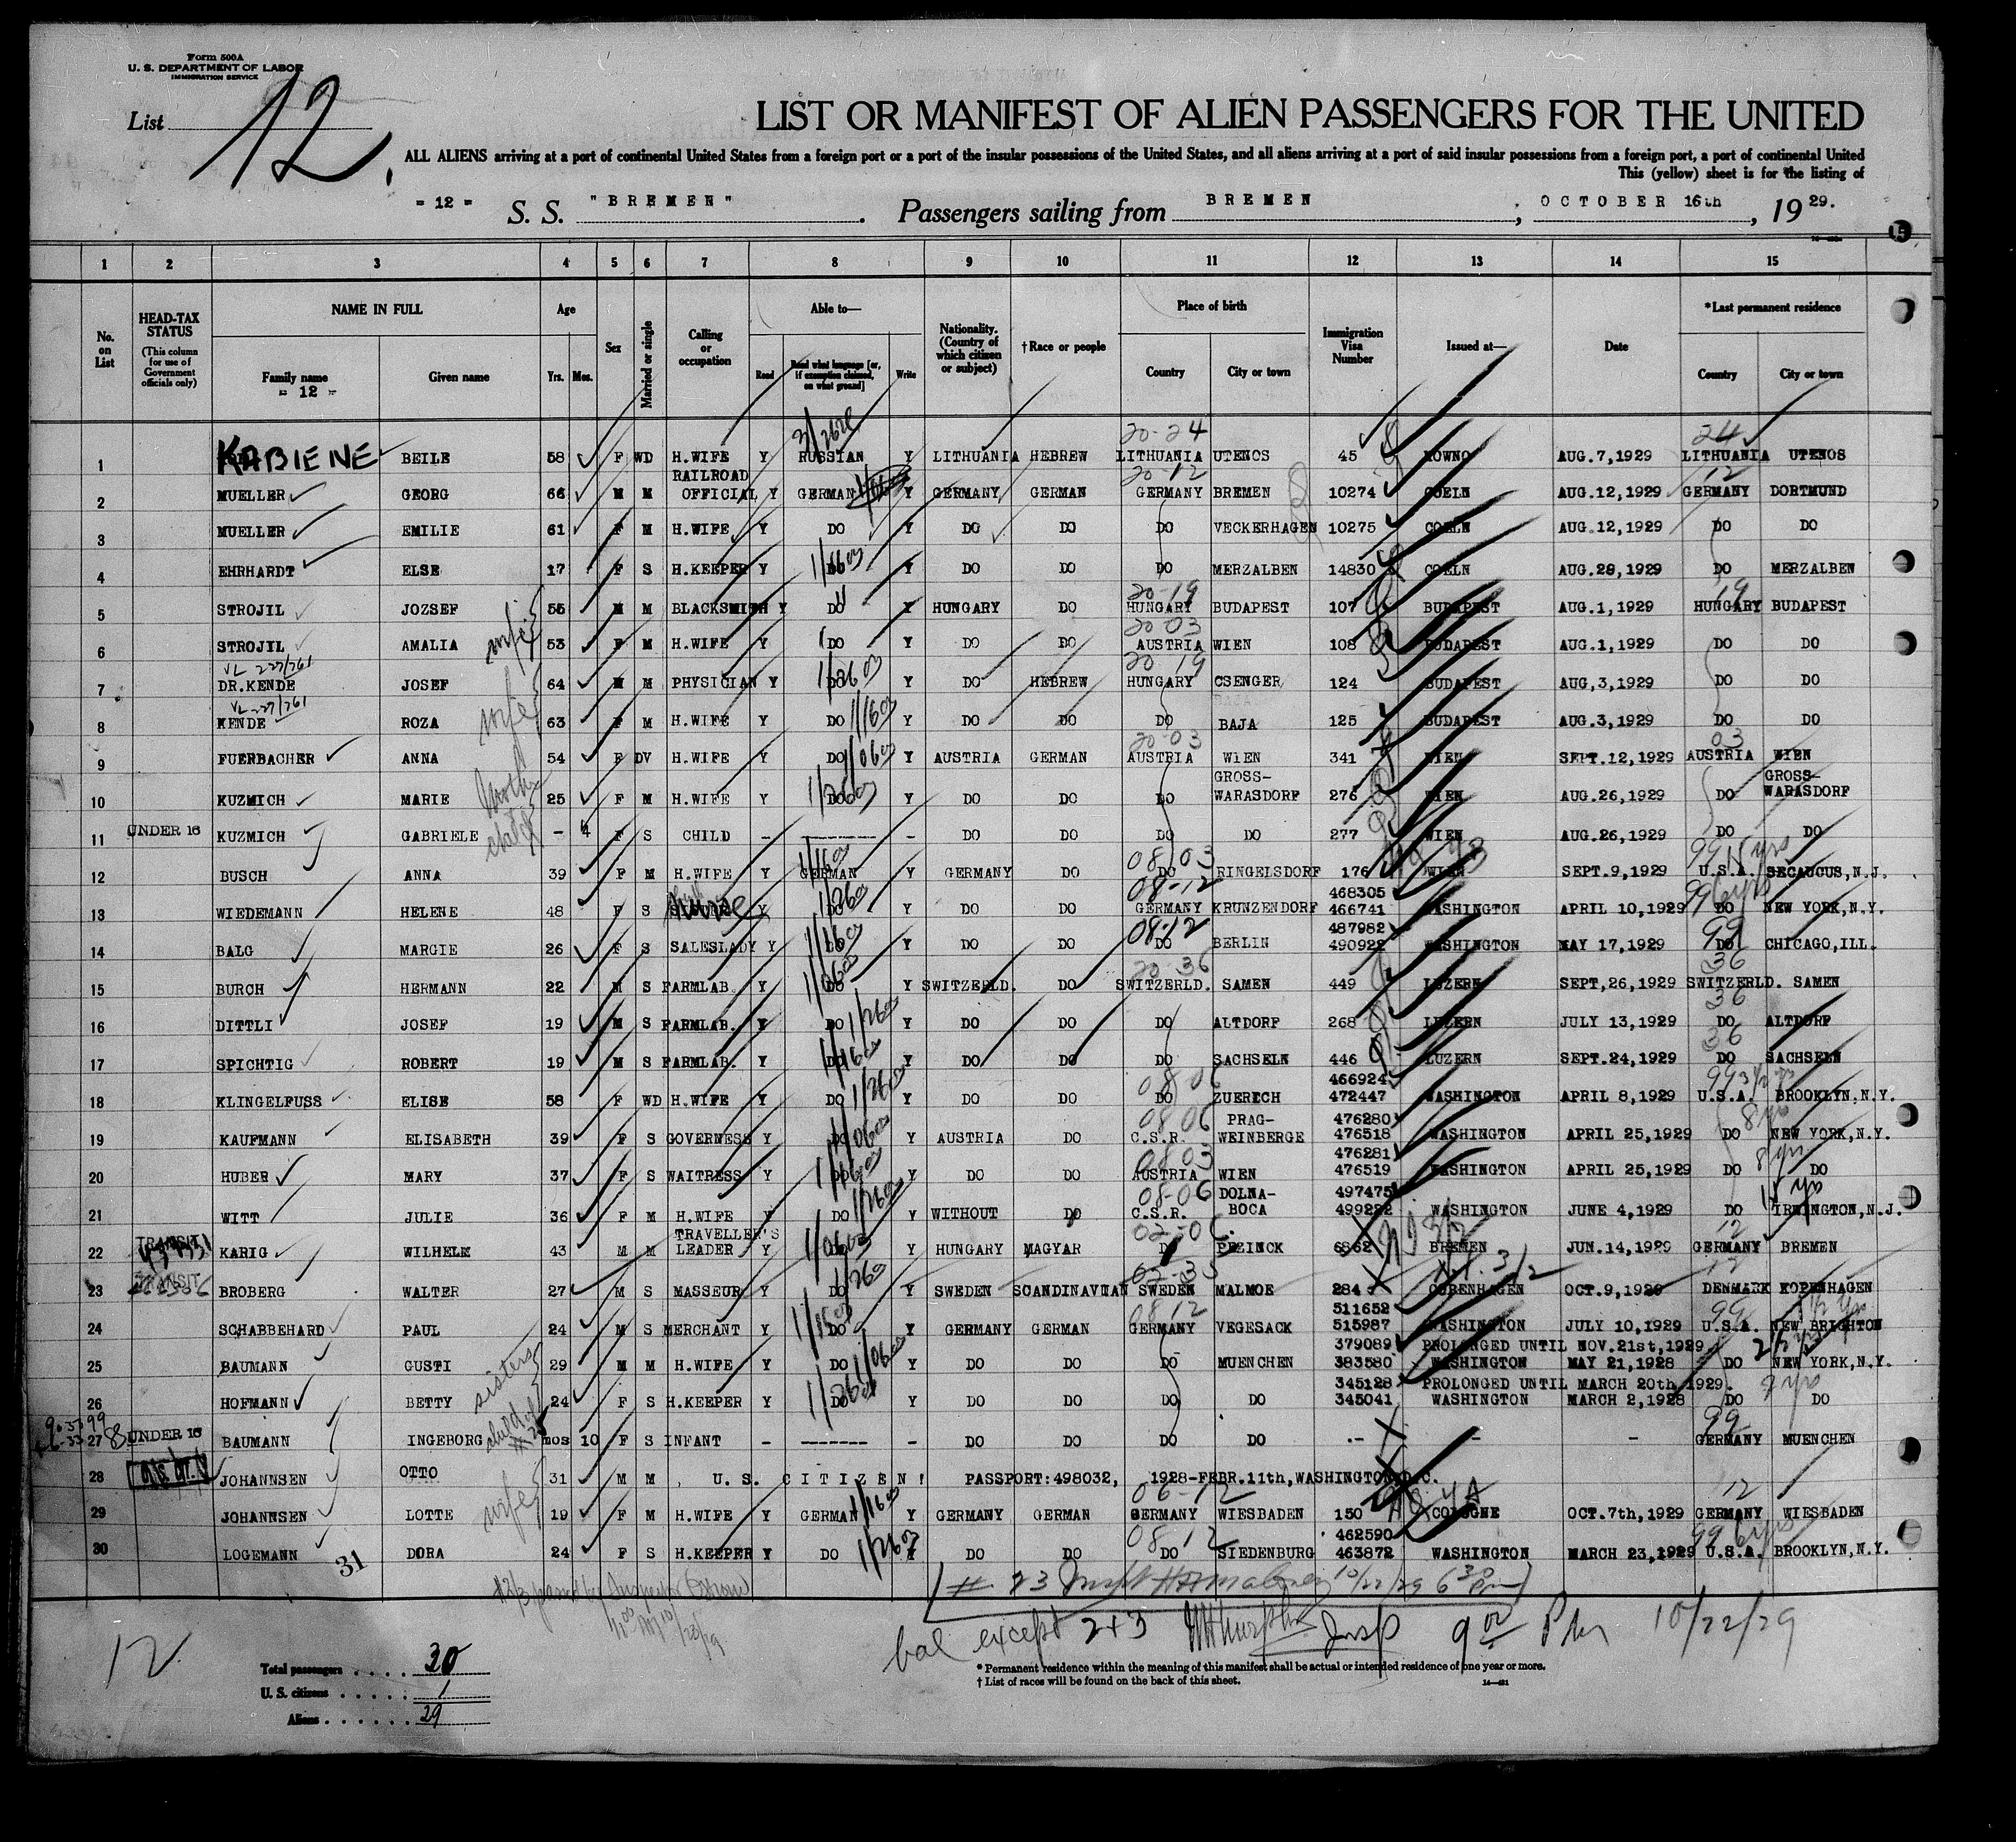 Form 500A
U. S. DEPARTMENT OF LABOR
IMMIGRATION SERVICE
List 12.
LIST OR MANIFEST OF ALIEN PASSENGERS FOR THE UNITED
ALL ALIENS arriving at a port of continental United States from a foreign port or a port of the insular possessions of the United States, and all aliens arriving at a port of said insular possessions from a foreign port, a port of continental United
This (yellow) sheet is for the listing of
- 12 - S. S. "BREMEN". Passengers sailing from BREMEN, OCTOBER 16th, 19 29.
1 2 3 4 5 6 7 8 9 10 11 12 13 14 15
No. on List HEAD-TAX STATUS (This column for use of Government officials only) NAME IN FULL Family name - 12 - Given name Age Yrs. Mos. Sex Married or single Calling or occupation Able to— Read Read what language [or, if exemption claimed, on what ground] Write Nationality. (Country of which citizen or subject) †Race or people Place of birth Country City or town Immigration Visa Number Issued at— Date *Last permanent residence Country City or town
20-24 24
1 KABIENE BEILE 58 F WD H.WIFE Y RUSSIAN Y LITHUANIA HEBREW LITHUANIA UTENOS 45 KOWNO AUG.7,1929 LITHUANIA UTENOS
20-12 12
2 MUELLER GEORG 66 M M RAILROAD OFFICIAL Y GERMAN Y GERMANY GERMAN GERMANY BREMEN 10274 COELN AUG.12,1929 GERMANY DORTMUND
3 MUELLER EMILIE 61 F M H.WIFE Y DO Y DO DO DO VECKERHAGEN 10275 COELN AUG.12,1929 DO DO
4 EHRHARDT ELSE 17 F S H.KEEPER Y DO Y DO DO DO MERZALBEN 14830 COELN AUG.28,1929 DO MERZALBEN
20-19 19
5 STROJIL JOZSEF 55 M M BLACKSMITH Y DO Y HUNGARY DO HUNGARY BUDAPEST 107 BUDAPEST AUG.1,1929 HUNGARY BUDAPEST
20 03
6 STROJIL AMALIA wife 53 F M H.WIFE Y DO Y DO DO AUSTRIA WIEN 108 BUDAPEST AUG.1,1929 DO DO
VL 227/261 20 19
7 DR.KENDE JOSEF 64 M M PHYSICIAN Y DO Y DO HEBREW HUNGARY CSENGER 124 BUDAPEST AUG,3,1929 DO DO
VL 227/261
8 KENDE ROZA wife 63 F M H.WIFE Y DO Y DO DO DO BAJA 125 BUDAPEST AUG.3,1929 DO DO
20-03 03
9 FUERBACHER ANNA 54 F DV H.WIFE Y DO Y AUSTRIA GERMAN AUSTRIA WIEN 341 WIEN SEPT.12,1929 AUSTRIA WIEN
10 KUZMICH MARIE 25 F M H.WIFE Y DO Y DO DO DO GROSS-WARASDORF 276 WIEN AUG.26,1929 DO GROSS-WARASDORF
11 UNDER 16 KUZMICH GABRIELE child - 4 F S CHILD - -------- - DO DO DO DO 277 WIEN AUG.26,1929 DO DO
08 03 99
12 BUSCH ANNA 39 F M H.WIFE Y GERMAN Y GERMANY DO DO RINGELSDORF 176 WIEN SEPT.9,1929 U.S.A. SECAUCUS,N.J.
08-12 99 6 yrs
13 WIEDEMANN HELENE 48 F S nurse Y DO Y DO DO GERMANY KRUNZENDORF 468305 466741 WASHINGTON APRIL 10,1929 DO NEW YORK,N.Y.
08-12 99
14 BALG MARGIE 26 F S SALESLADY Y DO Y DO DO DO BERLIN 487982 490922 WASHINGTON MAY 17,1929 DO CHICAGO,ILL.
20-36 36
15 BURCH HERMANN 22 M S FARMLAB. Y DO Y SWITZERLD. DO SWITZERLD. SAMEN 449 LUZERN SEPT,26,1929 SWITZERLD. SAMEN
36
16 DITTLI JOSEF 19 M S FARMLAB. Y DO Y DO DO DO ALTDORF 268 LUZERN JULY 13,1929 DO ALTDORF
36
17 SPICHTIG ROBERT 19 M S FARMLAB. Y DO Y DO DO DO SACHSELN 446 LUZERN SEPT.24,1929 DO SACHSELN
08 06 99
18 KLINGELFUSS ELISE 58 F WD H.WIFE Y DO Y DO DO DO ZUERICH 466924 472447 WASHINGTON APRIL 8,1929 U.S.A. BROOKLYN.N.Y.
08 06 8 yrs
19 KAUFMANN ELISABETH 39 F S GOVERNESS Y DO Y AUSTRIA DO C.S.R. PRAG-WEINBERGE 476280 476518 WASHINGTON APRIL 25,1929 DO NEW YORK,N.Y.
08 03 8 yrs
20 HUBER MARY 37 F S WAITRESS Y DO Y DO DO AUSTRIA WIEN 476281 476519 WASHINGTON APRIL 25,1929 DO DO
08-06
21 WITT JULIE 36 F M H.WIFE Y DO Y WITHOUT DO C.S.R. DOLNA-BOCA 497475 499222 WASHINGTON JUNE 4,1929 DO IRVINGTON,N.J.
02-06 12
22 TRANSIT KARIG WILHELM 43 M M TRAVELLER'S LEADER Y DO Y HUNGARY MAGYAR DO PEZINCK 6862 BREMEN JUN.14,1929 GERMANY BREMEN
02-35
23 TRANSIT BROBERG WALTER 27 M S MASSEUR Y DO Y SWEDEN SCANDINAVIAN SWEDEN MALMOE 284 COPENHAGEN OCT.9,1929 DENMARK KOPENHAGEN
08 12 99
24 SCHABBEHARD PAUL 24 M S MERCHANT Y DO Y GERMANY GERMAN GERMANY VEGESACK 511652 515987 WASHINGTON JULY 10,1929 U.S.A. NEW BRIGHTON
379089 PROLONGED UNTIL NOV.21st,1929
25 BAUMANN GUSTI 29 M M H.WIFE Y DO Y DO DO DO MUENCHEN 383580 WASHINGTON MAY 21,1928 DO NEW YORK,N.Y.
345128 PROLONGED UNTIL MARCH 20th,1929.
26 HOFMANN BETTY sisters 24 F S H.KEEPER Y DO Y DO DO DO DO 345041 WASHINGTON MARCH 2,1928 DO DO
99
27 UNDER 16 BAUMANN INGEBORG child of #25 mos 10 F S INFANT - -------- - DO DO DO DO -- - - GERMANY MUENCHEN
28 U.S. CIT. JOHANNSEN OTTO 31 M M U.S. CITIZEN! PASSPORT:498032, 1928-FEBR.11th,WASHINGTON,D.C.
06-12 12
29 JOHANNSEN LOTTE wife 19 F M H.WIFE Y GERMAN Y GERMANY GERMAN GERMANY WIESBADEN 150 COLOGNE OCT.7th,1929 GERMANY WIESBADEN
08 12 99 6 yrs
30 LOGEMANN DORA 24 F S H.KEEPER Y DO Y DO DO DO SIEDENBURG 462590 463872 WASHINGTON MARCH 23,1929 U.S.A. BROOKLYN,N.Y.
31
# 23 10/22/29 6 30 Pm
bal except 2+3 Insp 9 00 Pm 10/22/29
12
Total passengers . . . . 30
U. S. citizens . . . . . 1
Aliens . . . . . . 29
* Permanent residence within the meaning of this manifest shall be actual or intended residence of one year or more.
† List of races will be found on the back of this sheet.